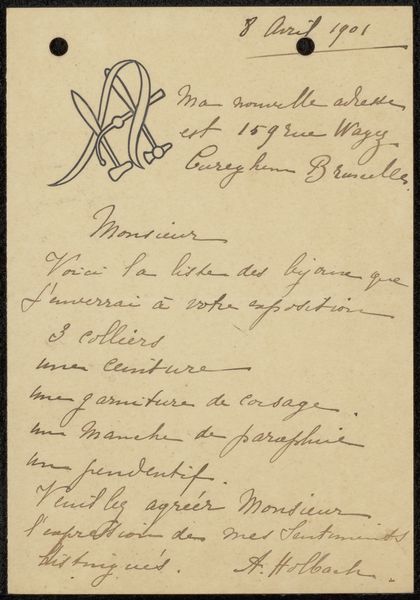 8 Avril 1901
Ma nouvelle adresse
est 159 rue Wayez
Cureghem Bruxelles.
Monsieur
Voici la liste des bijoux que
j'enverrai à votre exposition
3 colliers
une ceinture
une garniture de corsage.
un manche de parapluie
un pendentif.
Veuillez agréer Monsieur
l'expression de mes sentiments
distingués. A. Holbach.